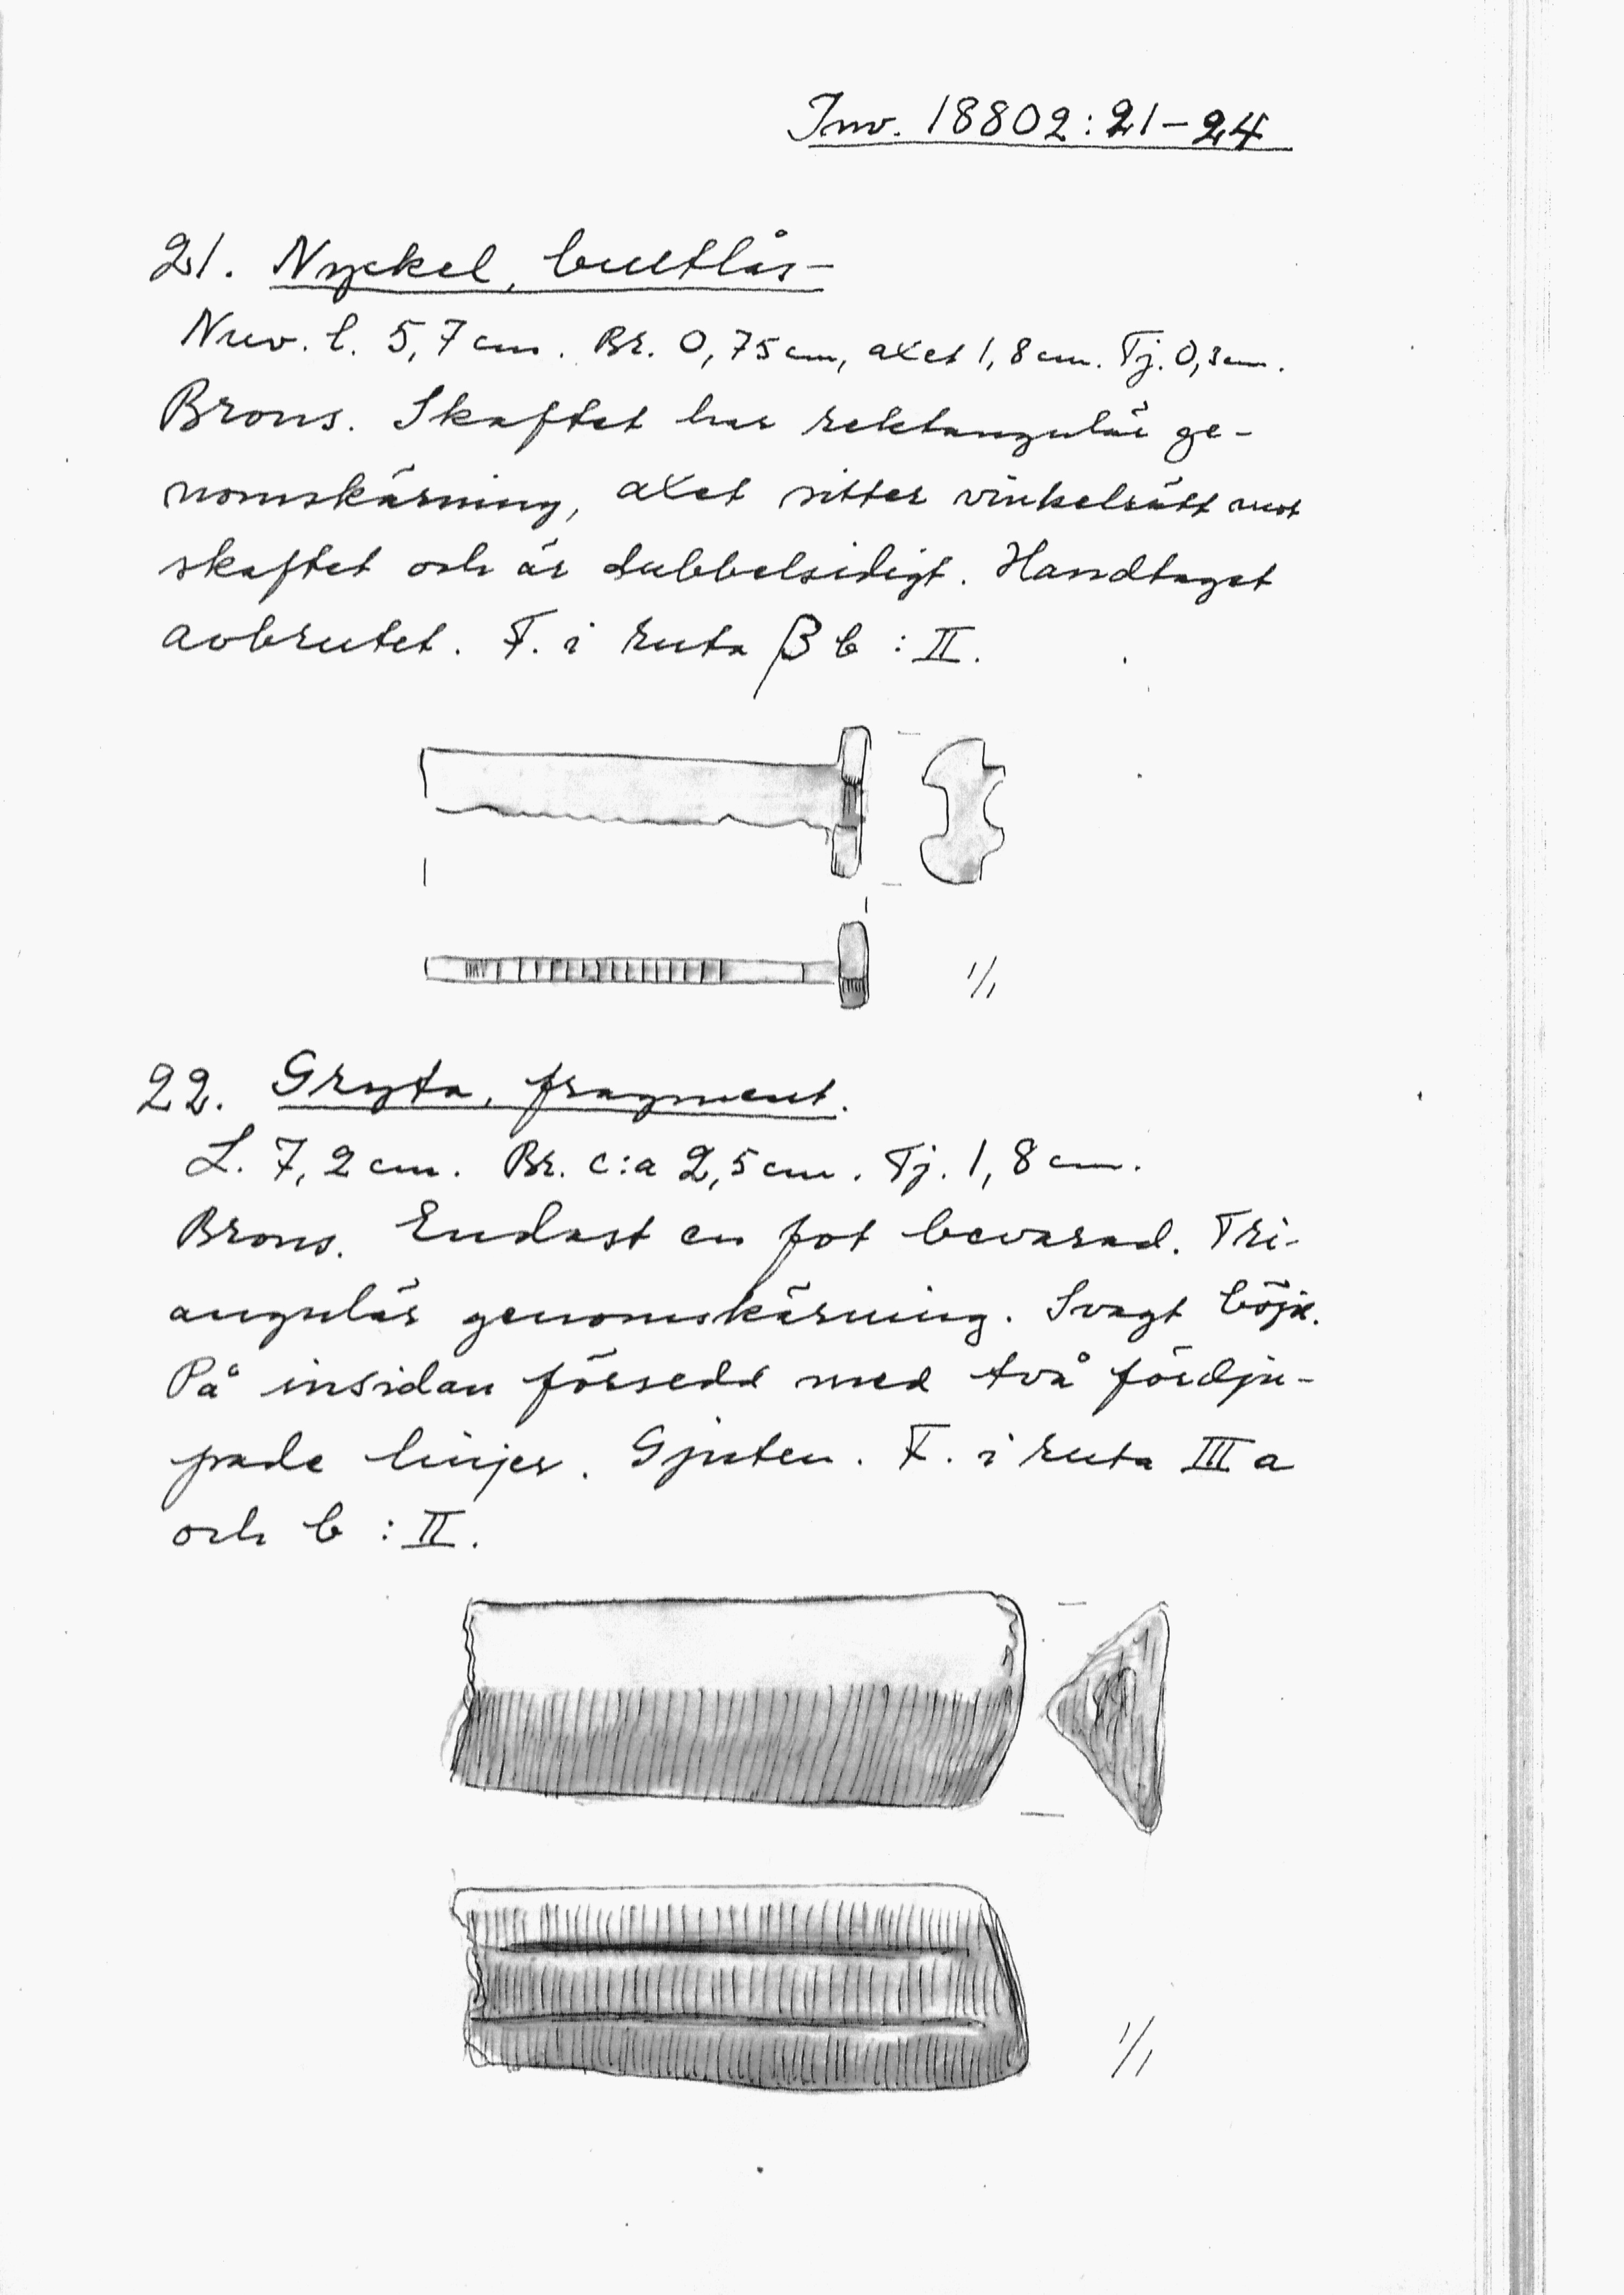 Inv. 18802:21-24
21. Nyckel, bultlås-
Nuv. l. 5,7 cm. Br. 0,75 cm, axet 1,8 cm. Tj. 0,3 cm.
Brons. Skaftet har rektangulär ge-
nomskärning, axet sitter vinkelrätt mot
skaftet och är dubbelsidigt. Handtaget
avbrutet. F. i ruta β b : II.
1/1
22. Gryta, fragment.
L. 7,2 cm. Br. c:a 2,5 cm. Tj. 1,8 cm.
Brons. Endast en fot bevarad. Tri-
angulär genomskärning. Svagt böjd.
På insidan försedd med två fördju-
pade linjer. Gjuten. F. i ruta III a
och b : II.
1/1